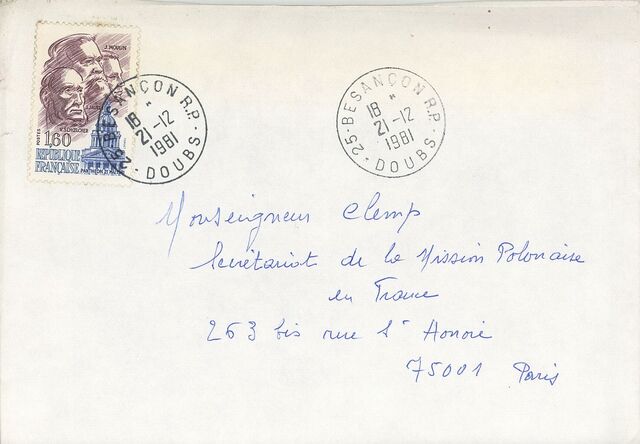 J. MOULIN
V. SCHOELCHER
POSTES 1,60
REPUBLIQUE
FRANÇAISE PANTHEON 21 MAI 1981
25 BESANÇON R.P.
18 H
21-12
1981
- DOUBS -
25 - BESANÇON R.P.
18 H
21-12
1981
- DOUBS -
Monseigneur Clemp
Secrétariat de la Mission Polonaise
en France
263 bis rue St Honoré
75001 Paris